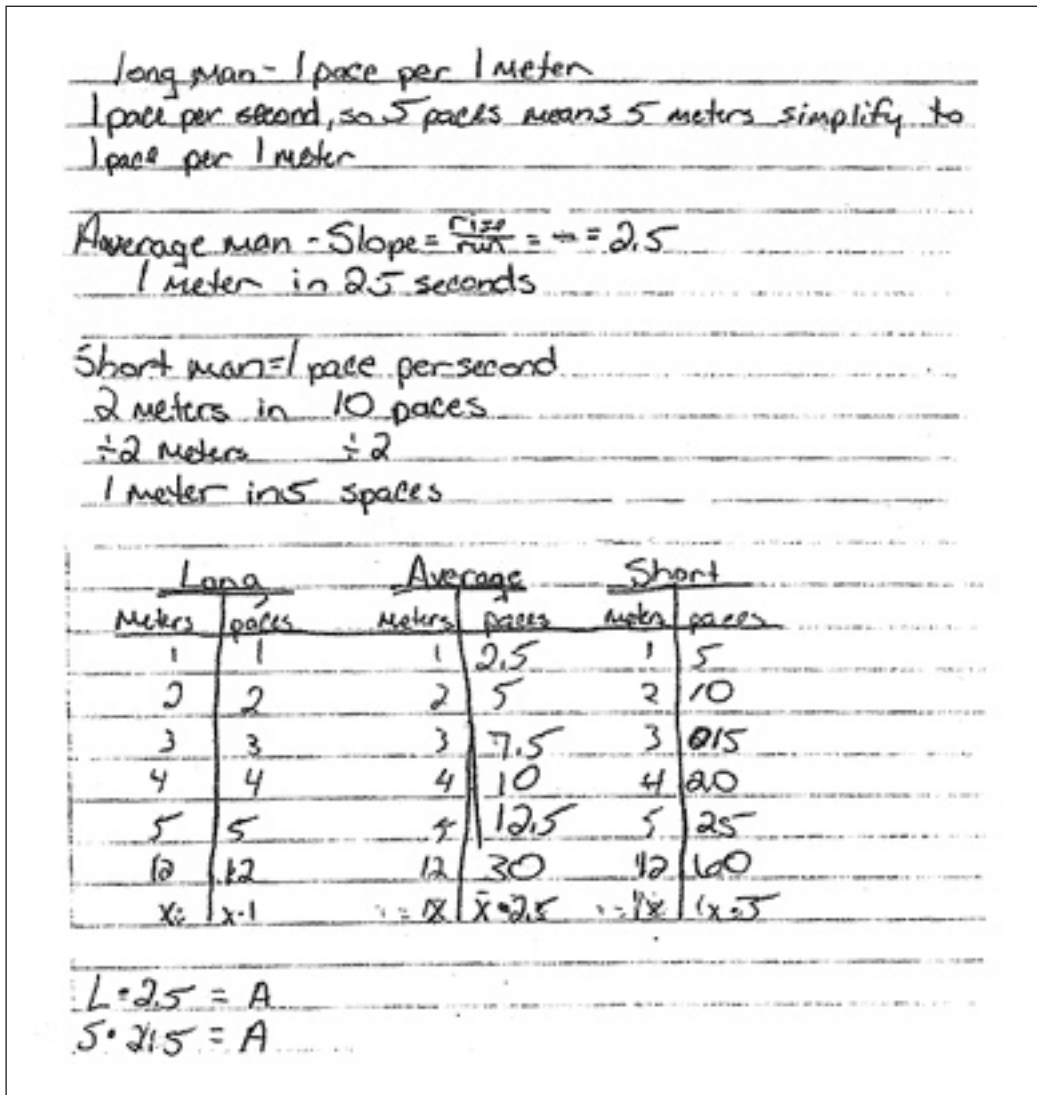 long man - 1 pace per 1 meter
1 pace per second, so 5 paces means 5 meters simplify to
1 pace per 1 meter
Average man - Slope = rise/run = = 2.5
1 meter in 2.5 seconds
Short man = 1 pace per second
2 meters in 10 paces
÷2 meters ÷2
1 meter in 5 spaces
Long Average Short
Meters paces Meters paces Meters paces
1 1 1 2.5 1 5
2 2 2 5 2 10
3 3 3 7.5 3 15
4 4 4 10 4 20
5 5 5 12.5 5 25
12 12 12 30 12 60
x x·1 x x·2.5 x x·5
L·2.5 = A
S· = A